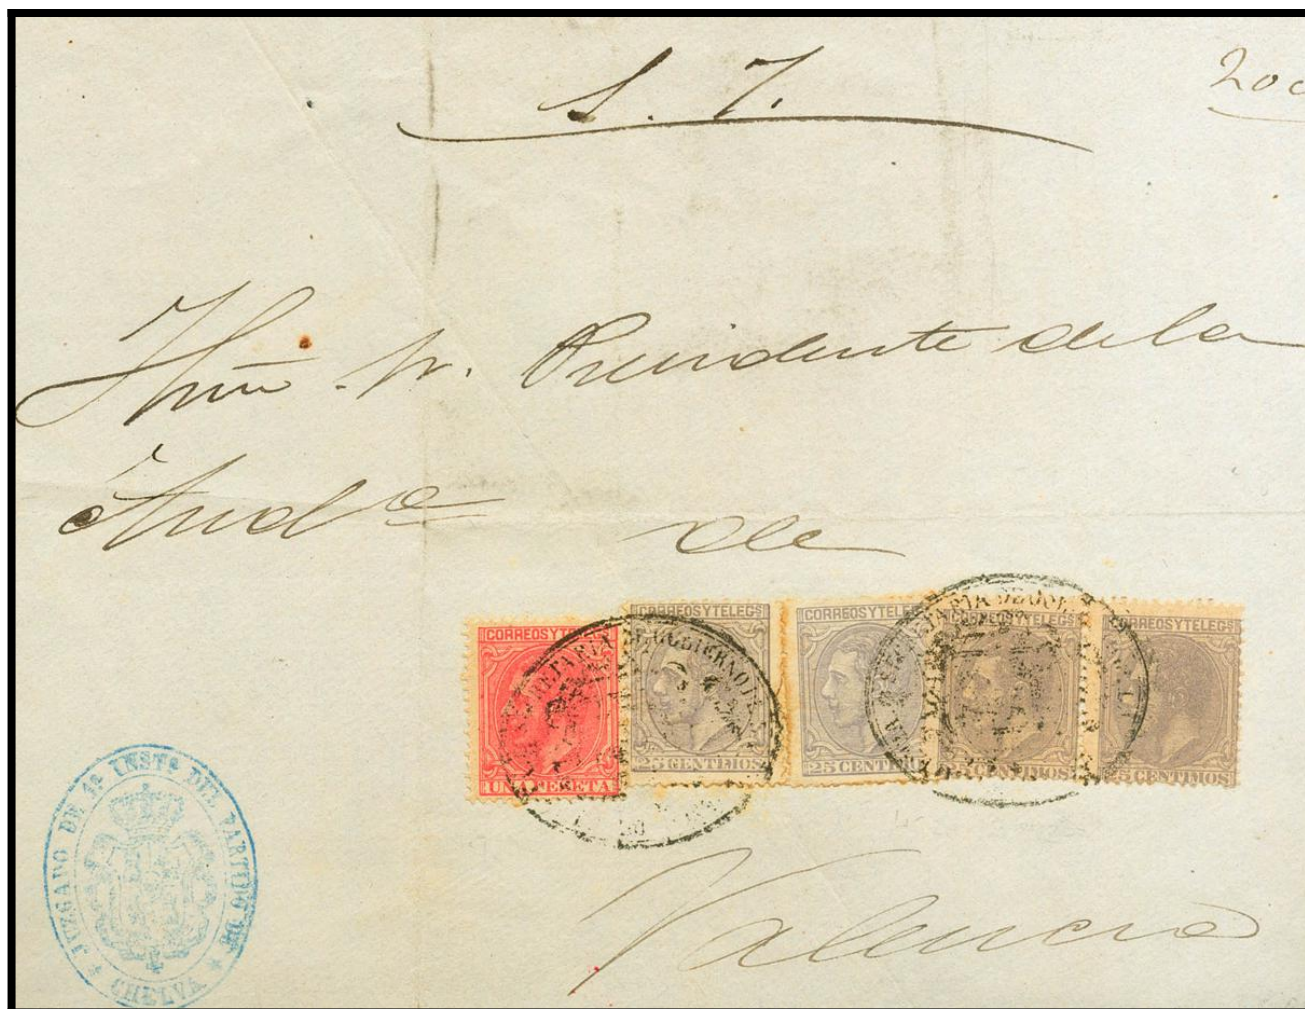 S. J.
200
Ilmo. Sr. Presidente de la
Aud.a de
CORREOS Y TELEGs
UNA PESETA
CORREOS Y TELEGs
25 CENTIMOS
CORREOS Y TELEGs
25 CENTIMOS
25 CENTIMOS
CORREOS Y TELEGs
25 CENTIMOS
Valencia
JUZGADO DE 1ª INSTª DEL PARTIDO DE
CHELVA